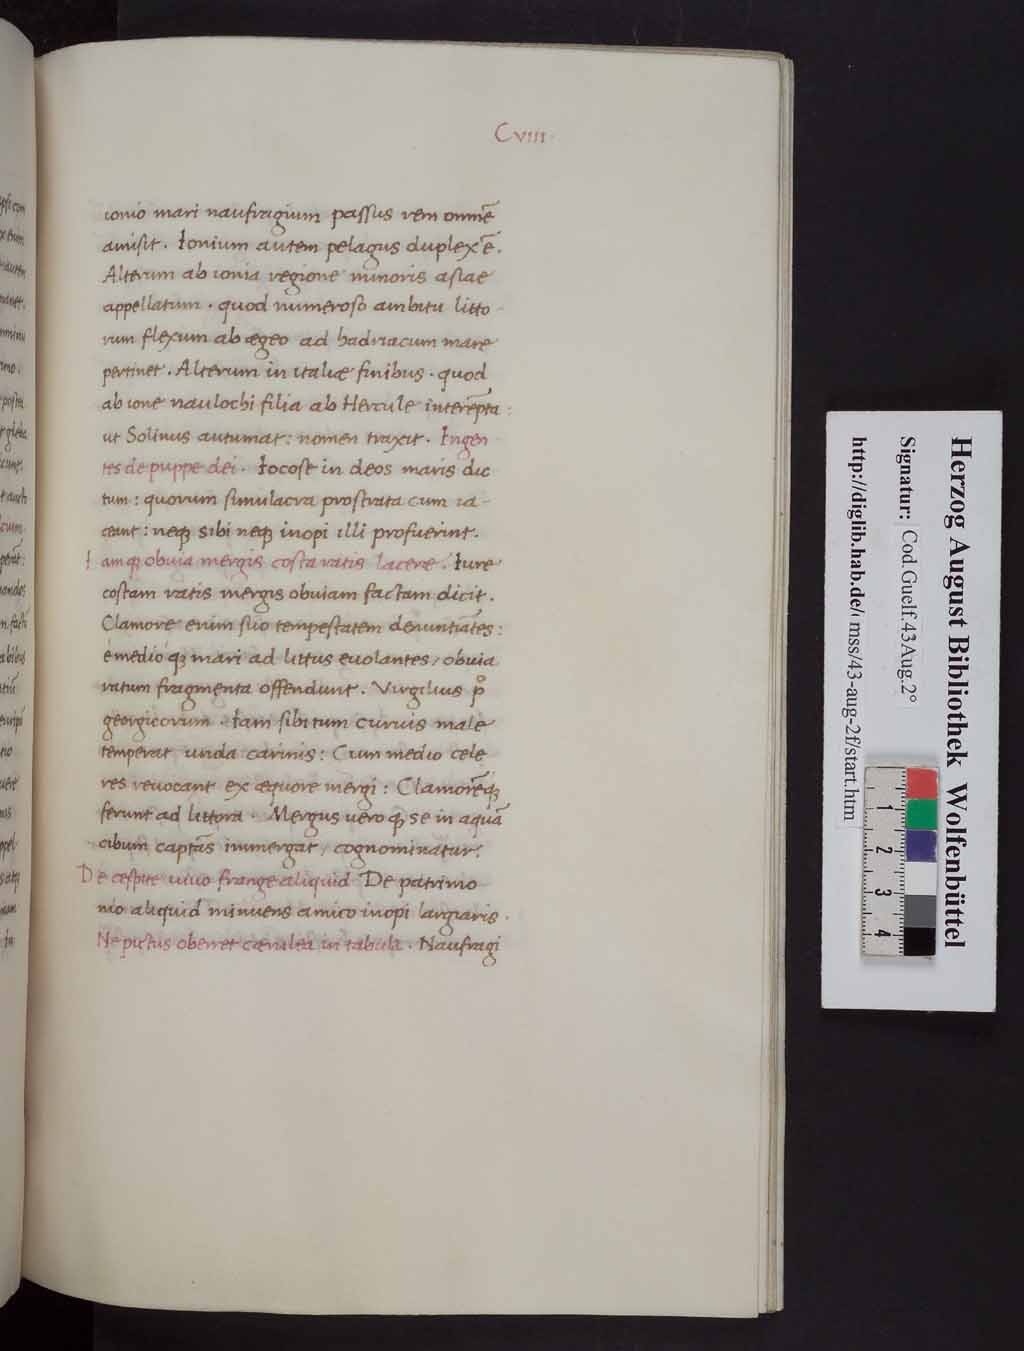 Cviii·
ionio mari naufragium passus rem omnē
amisit. Ionium autem pelagus duplex ē.
Alterum ab ionia regione minoris asiae
appellatum. quod numeroso ambitu litto-
rum flexum ab ægeo ad hadriacum mare
pertinet. Alterum in italiæ finibus. quod
ab ione naulochi filia ab Hercule interēpta:
ut Solinus autumat: nomen traxit. Ingen
tes de puppe dei. Iocose in deos maris dic
tum: quorum simulacra prostrata cum ia-
ceant: neqȝ sibi neqȝ inopi illi profuerint.
I amqȝ obuia mergis costa ratis lacere. Iure
costam ratis mergis obuiam factam dicit.
Clamore enim suo tempestatem denuntiātes:
é medio qȝ mari ad littus euolantes, obuia
ratum fragmenta offendunt. Virgilius p̊
georgicorum. Iam sibi tum curuis male
temperat unda carinis: Cum medio cele
res reuocant ex æquore mergi: Clamorēqȝ
ferunt ad littora. Mergus uero qȝ se in aquā
cibum captās immergat, cognominatur.
D e cespite uiuo frange aliquid De patrimo
nio aliquid minuens amico inopi largiaris.
Ne pictus oberret cærulea in tabula. Naufragi
Herzog August Bibliothek Wolfenbüttel
Signatur: Cod.Guelf.43Aug.2°
http://diglib.hab.de/mss/43-aug-2f/start.htm
1
2
3
4